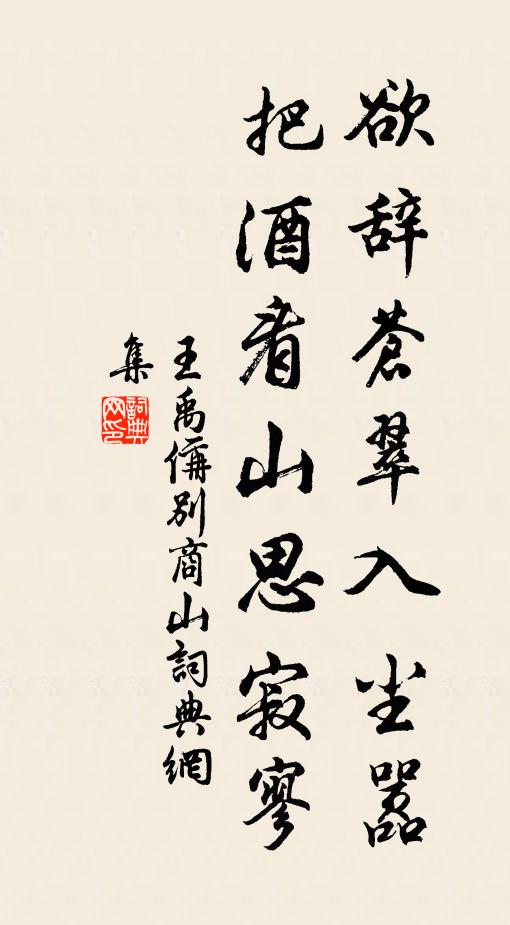 欲辞蒼翠入尘嚣
把酒看山思寂寥
王禹偁别商山詞典網
集
詞典网印